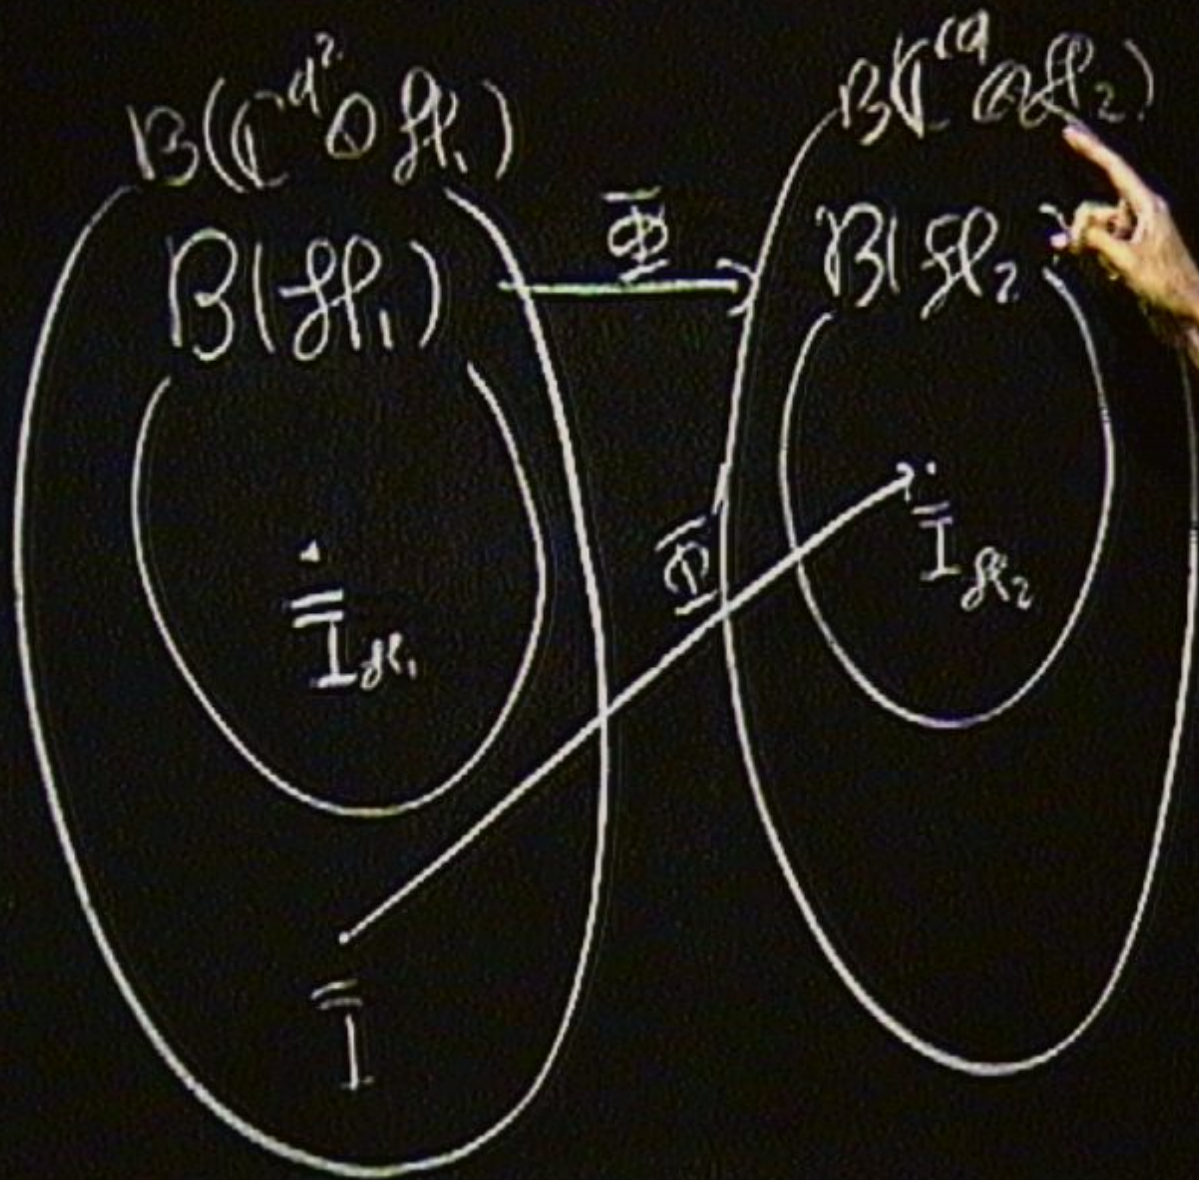 B(ℂ^{q²} ⊗ ℋ₁)
B(ℋ₁)
Φ
B(ℋ₂)
Φ
I_{ℋ₁}
I_{ℋ₂}
I